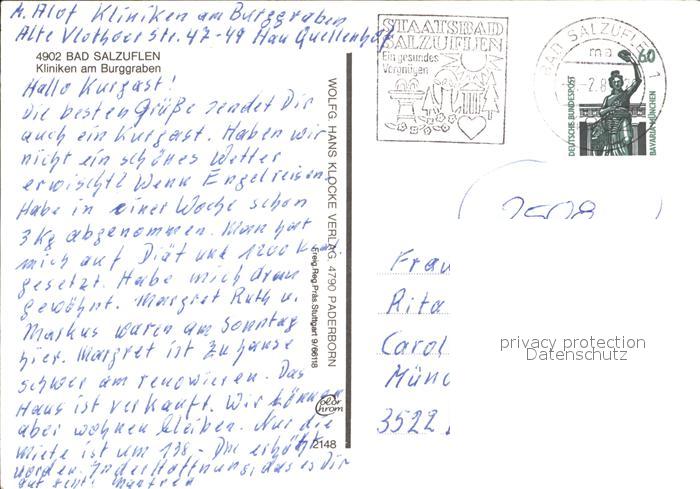 M. Alof Kliniken am Burggraben
Alte Vlothoer Str. 47-49 Hau Quellenhof
4902 BAD SALZUFLEN
Kliniken am Burggraben
Hallo Kurgast!
Die besten Grüße sendet Dir
auch ein Kurgast. Haben wir
nicht ein schönes Wetter
erwischt? Wenn Engel reisen.
Habe in einer Woche schon
3 Kg abgenommen. Man hat
mich auf Diät und 1200 Kal
gesetzt. Habe mich dran
gewöhnt. Margret Ruth u.
Markus waren am Sonntag
hier. Margret ist zu hause
schwer am renovieren. Das
Haus ist verkauft. Wir können
aber wohnen bleiben. Nur die
Miete ist um 138,- DM erhöht
worden. In der Hoffnung, das es Dir
gut geht! Manfred
WOLFG. HANS KLOCKE VERLAG, 4790 PADERBORN
Freig. Reg. Präs. Stuttgart 9/66118
color
chrom
2148
STAATSBAD
SALZUFLEN
Ein gesundes
Vergnügen
BAD SALZUFLEN 1
DEUTSCHE BUNDESPOST
60
BAVARIA MÜNCHEN
Frau
Rita
Carol
Münc
3522
privacy protection
Datenschutz